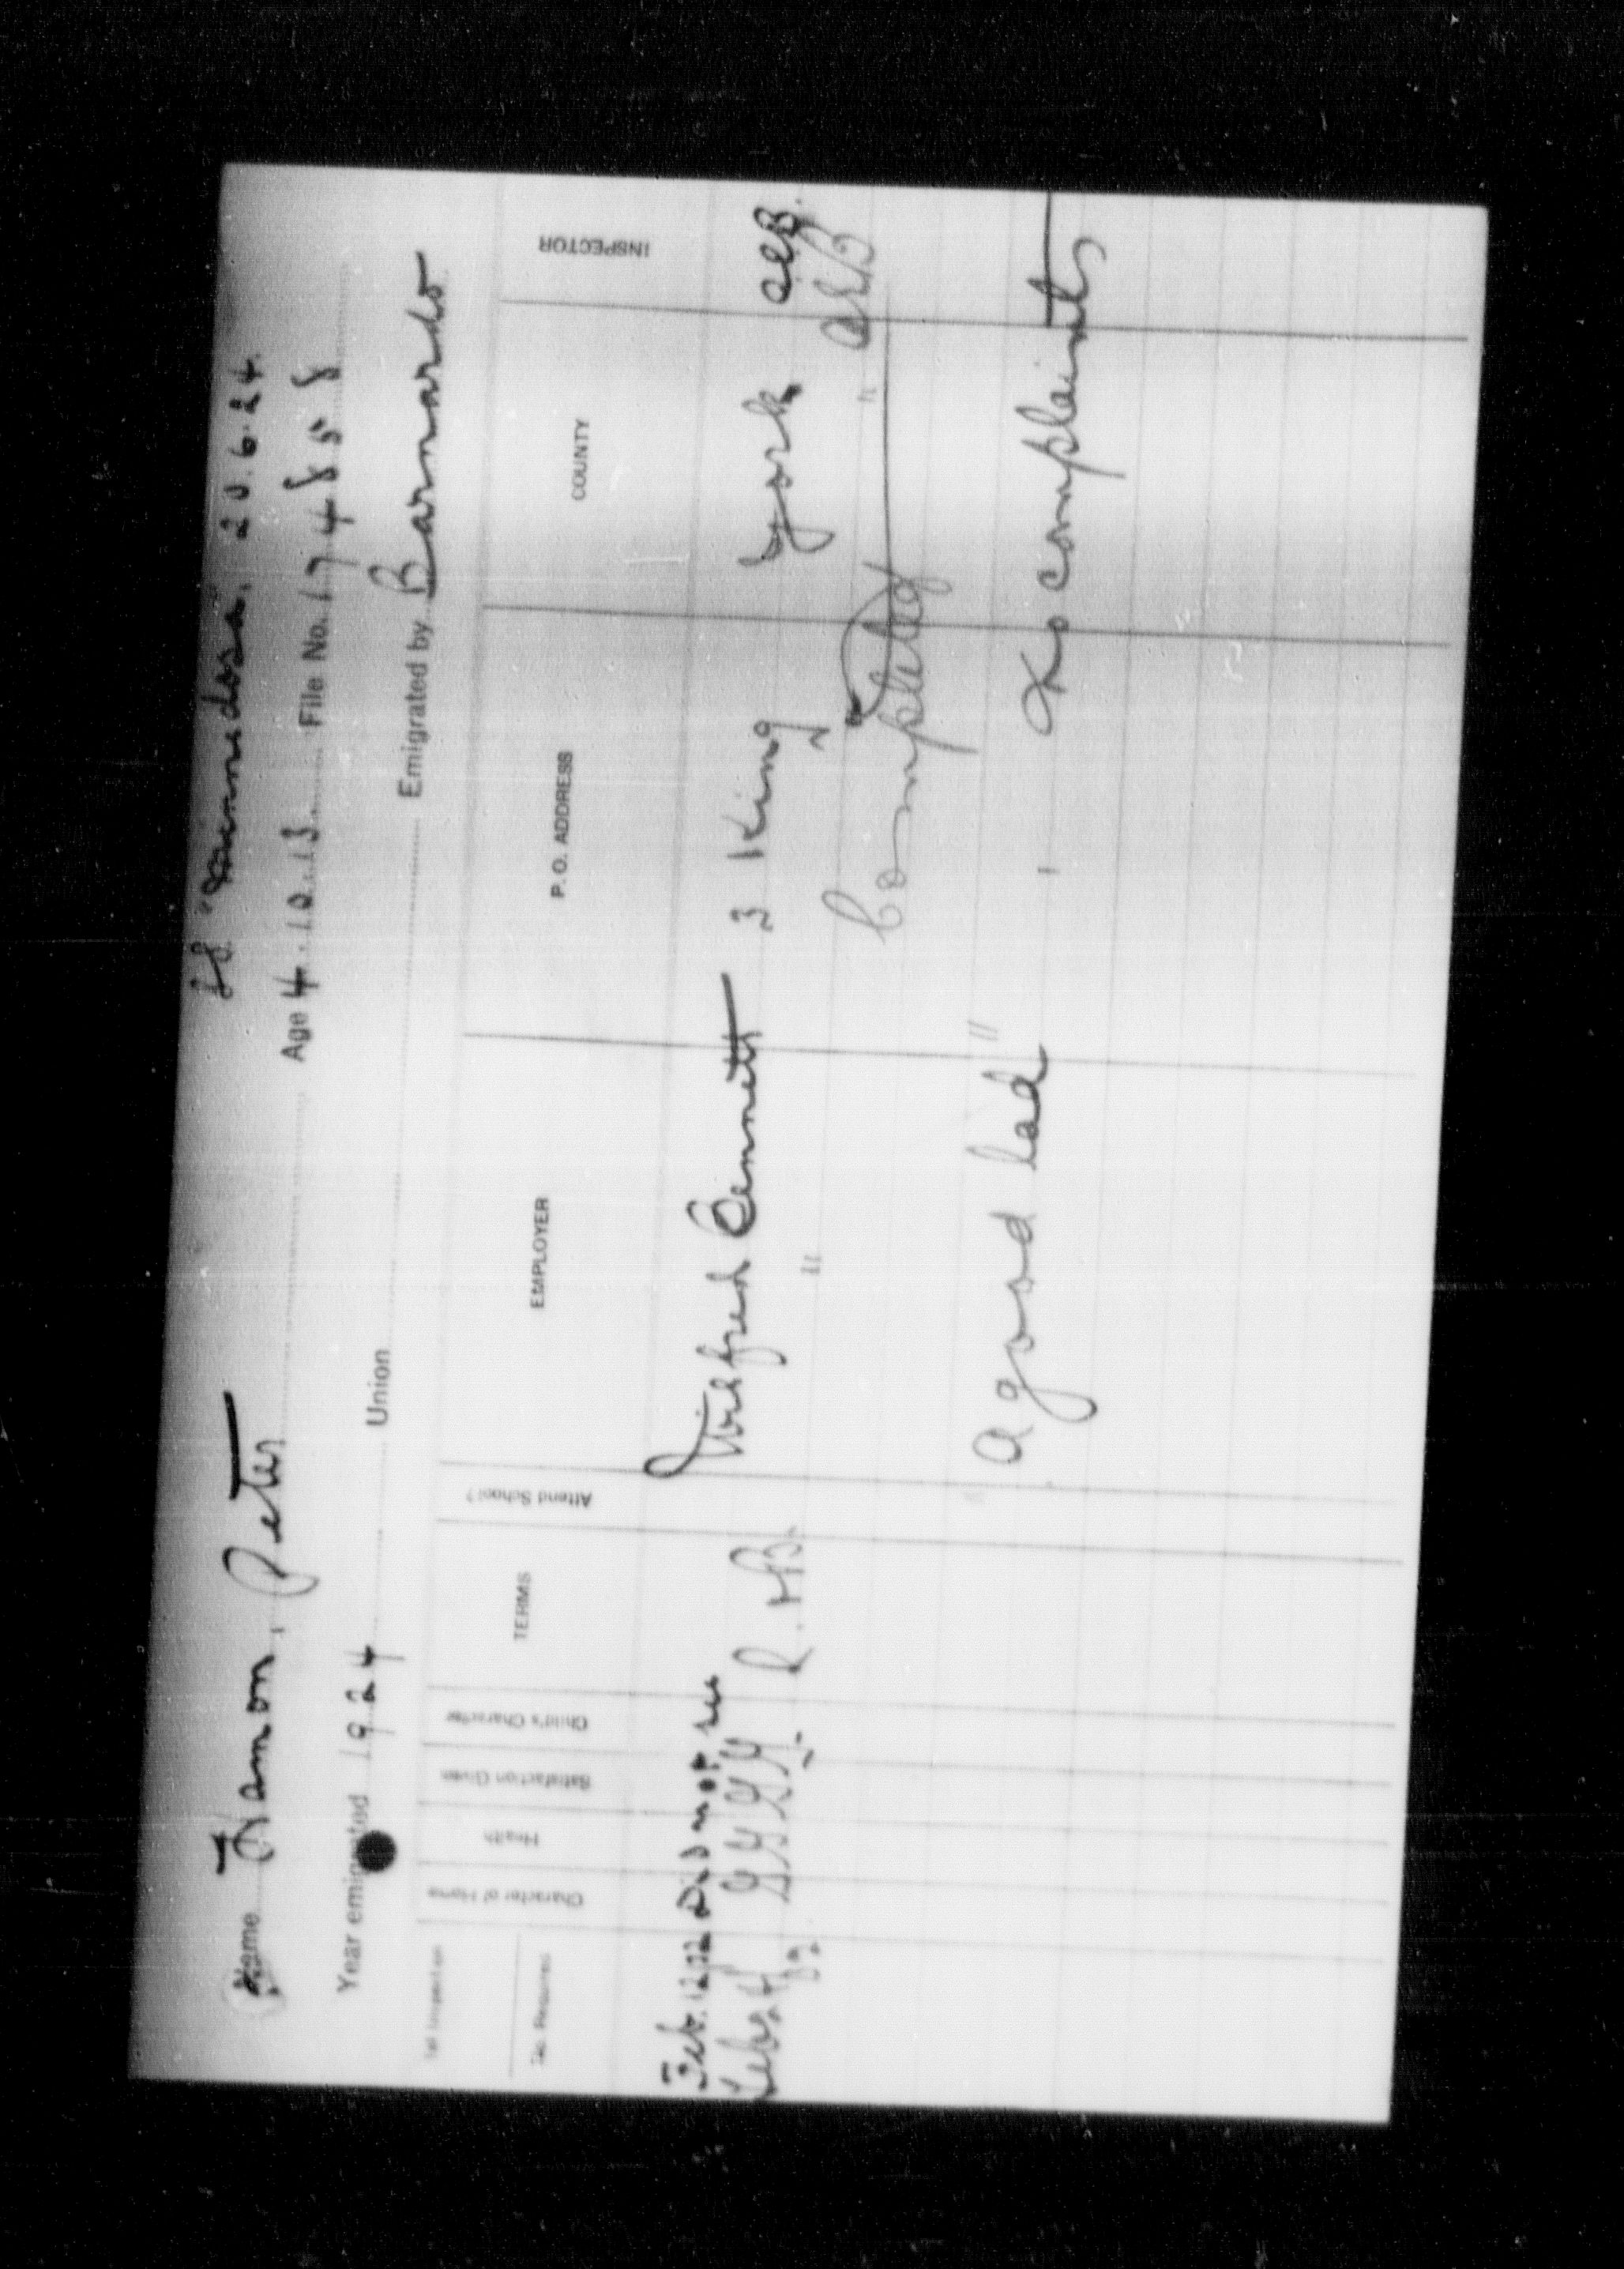 SS "Minnedosa. 20.6.24.
Name Framon, Peter Age 4.10.13 File No. 174858
Year emigrated 1924 Union Emigrated by Barnardo
INSPECTOR COUNTY P. O. ADDRESS EMPLOYER Attend School? TERMS Child's Character Satisfaction Given Health Character of Home
Feb. 12 Did not see
Wilfred Bennett 3 King York AEB.
Feb. G G G G R. HB. " " AEB
Completed
"A good lad" No complaints